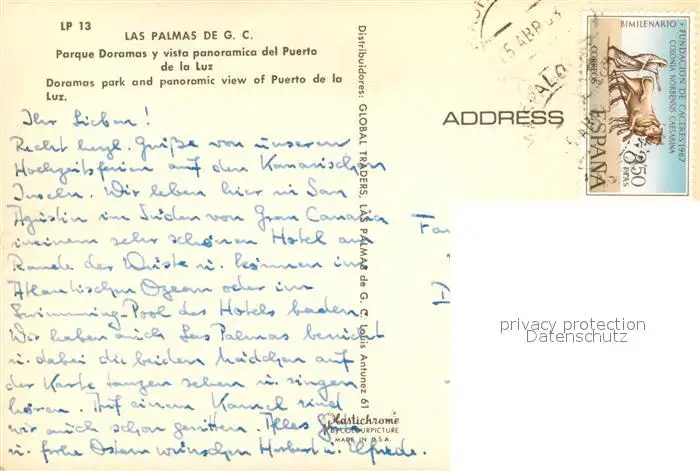 LP 13
LAS PALMAS DE G. C.
Parque Doramas y vista panoramica del Puerto
de la Luz
Doramas park and panoramic view of Puerto de la
Luz.
Ihr Lieben!
Recht herzl. Grüße von unseren
Hochzeitsferien auf den Kanarischen
Inseln. Wir leben hier in San
Agustin im Süden von Gran Canaria
in einem sehr schönen Hotel am
Rande der Wüste u. können im
Atlantischen Ozean oder im
Swimming-Pool des Hotels baden.
Wir haben auch Las Palmas besucht
u. dabei die beiden Mädchen auf
der Karte tanzen sehen u. singen
hören. Auf einem Kamel sind
wir auch schon geritten. Alles Gute
u. frohe Ostern wünschen Herbert u. Elfriede.
Distribuidores: GLOBAL TRADERS, LAS PALMAS de G. C. Louis Antunez 61
Plastichrome
BY COLOURPICTURE
MADE IN U.S.A.
ADDRESS
ABR
BIMILENARIO
FUNDACION DE CACERES 1967
COLONIA NORBENSIS CAESARINA
CORREOS
ESPAÑA
3,50
PTAS
privacy protection
Datenschutz